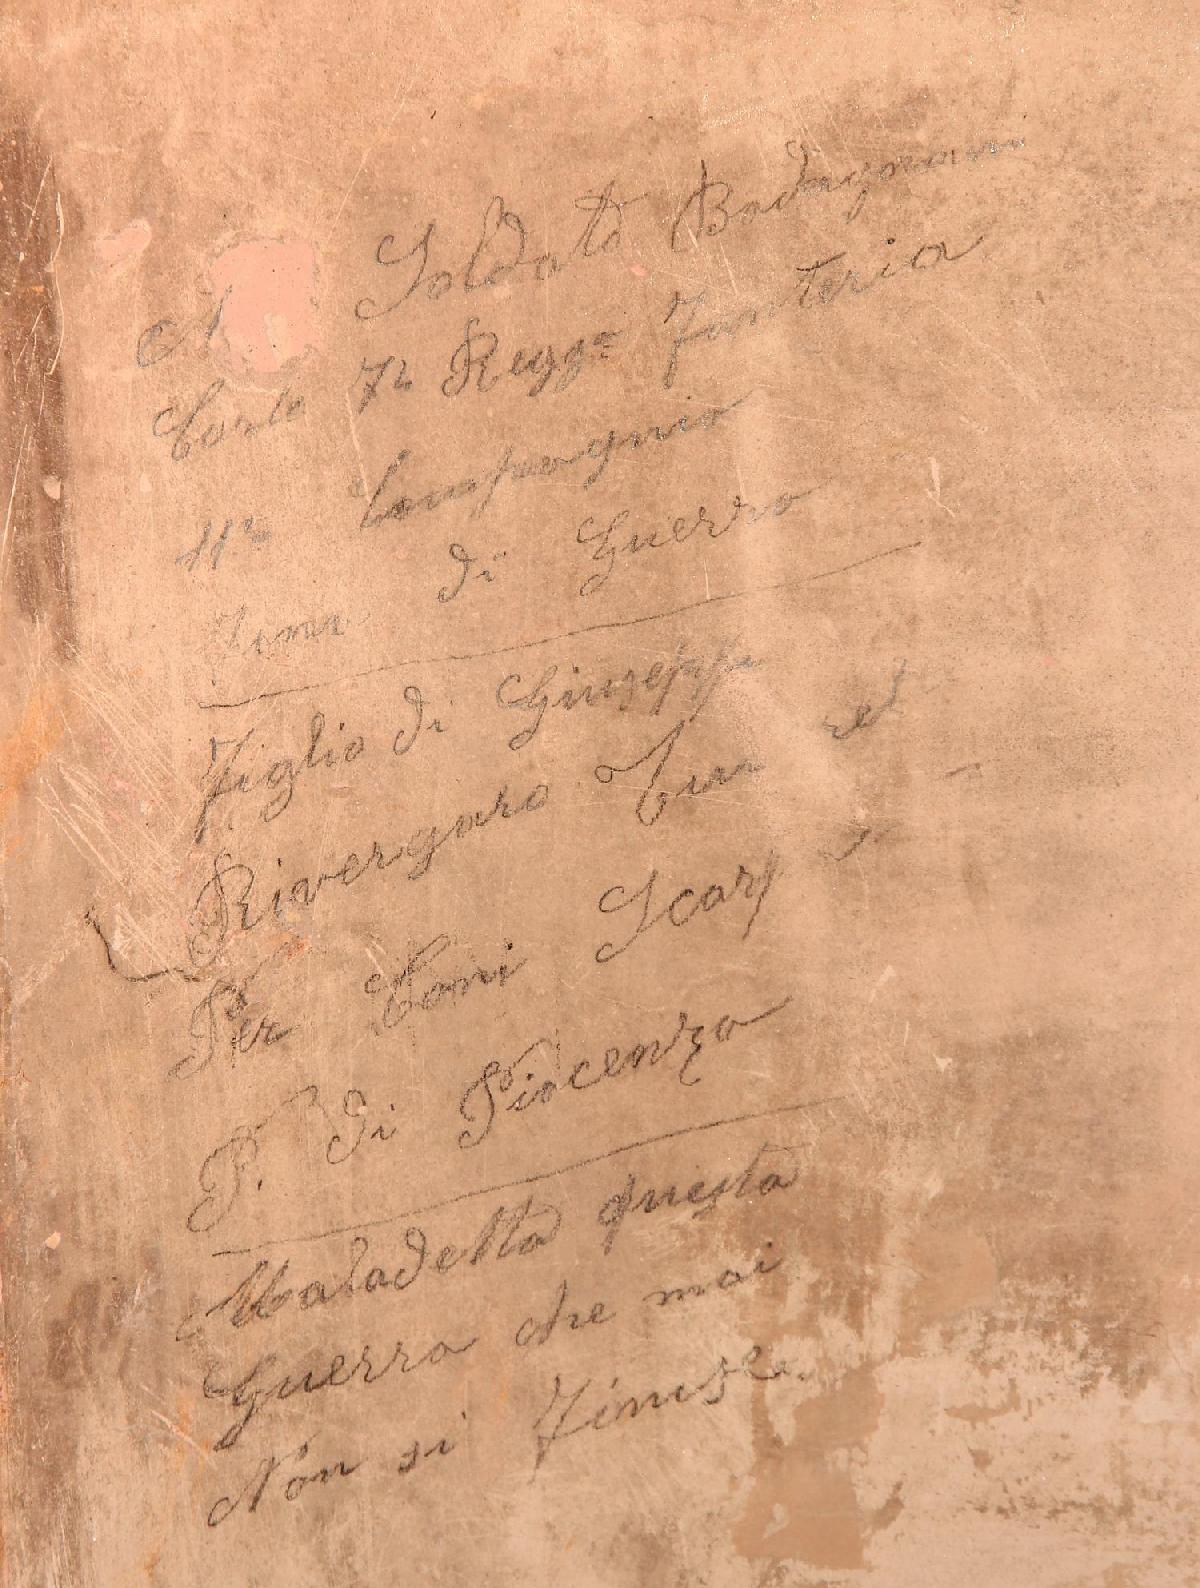 Soldato
Carlo 72 Regg. Fanteria
11a Compagnia
di Guerra
Figlio di Giuseppe
Rivergaro
Per Coni Scarp
P. di Piacenza
Maladetta questa
Guerra che mai
Non si Finisce.